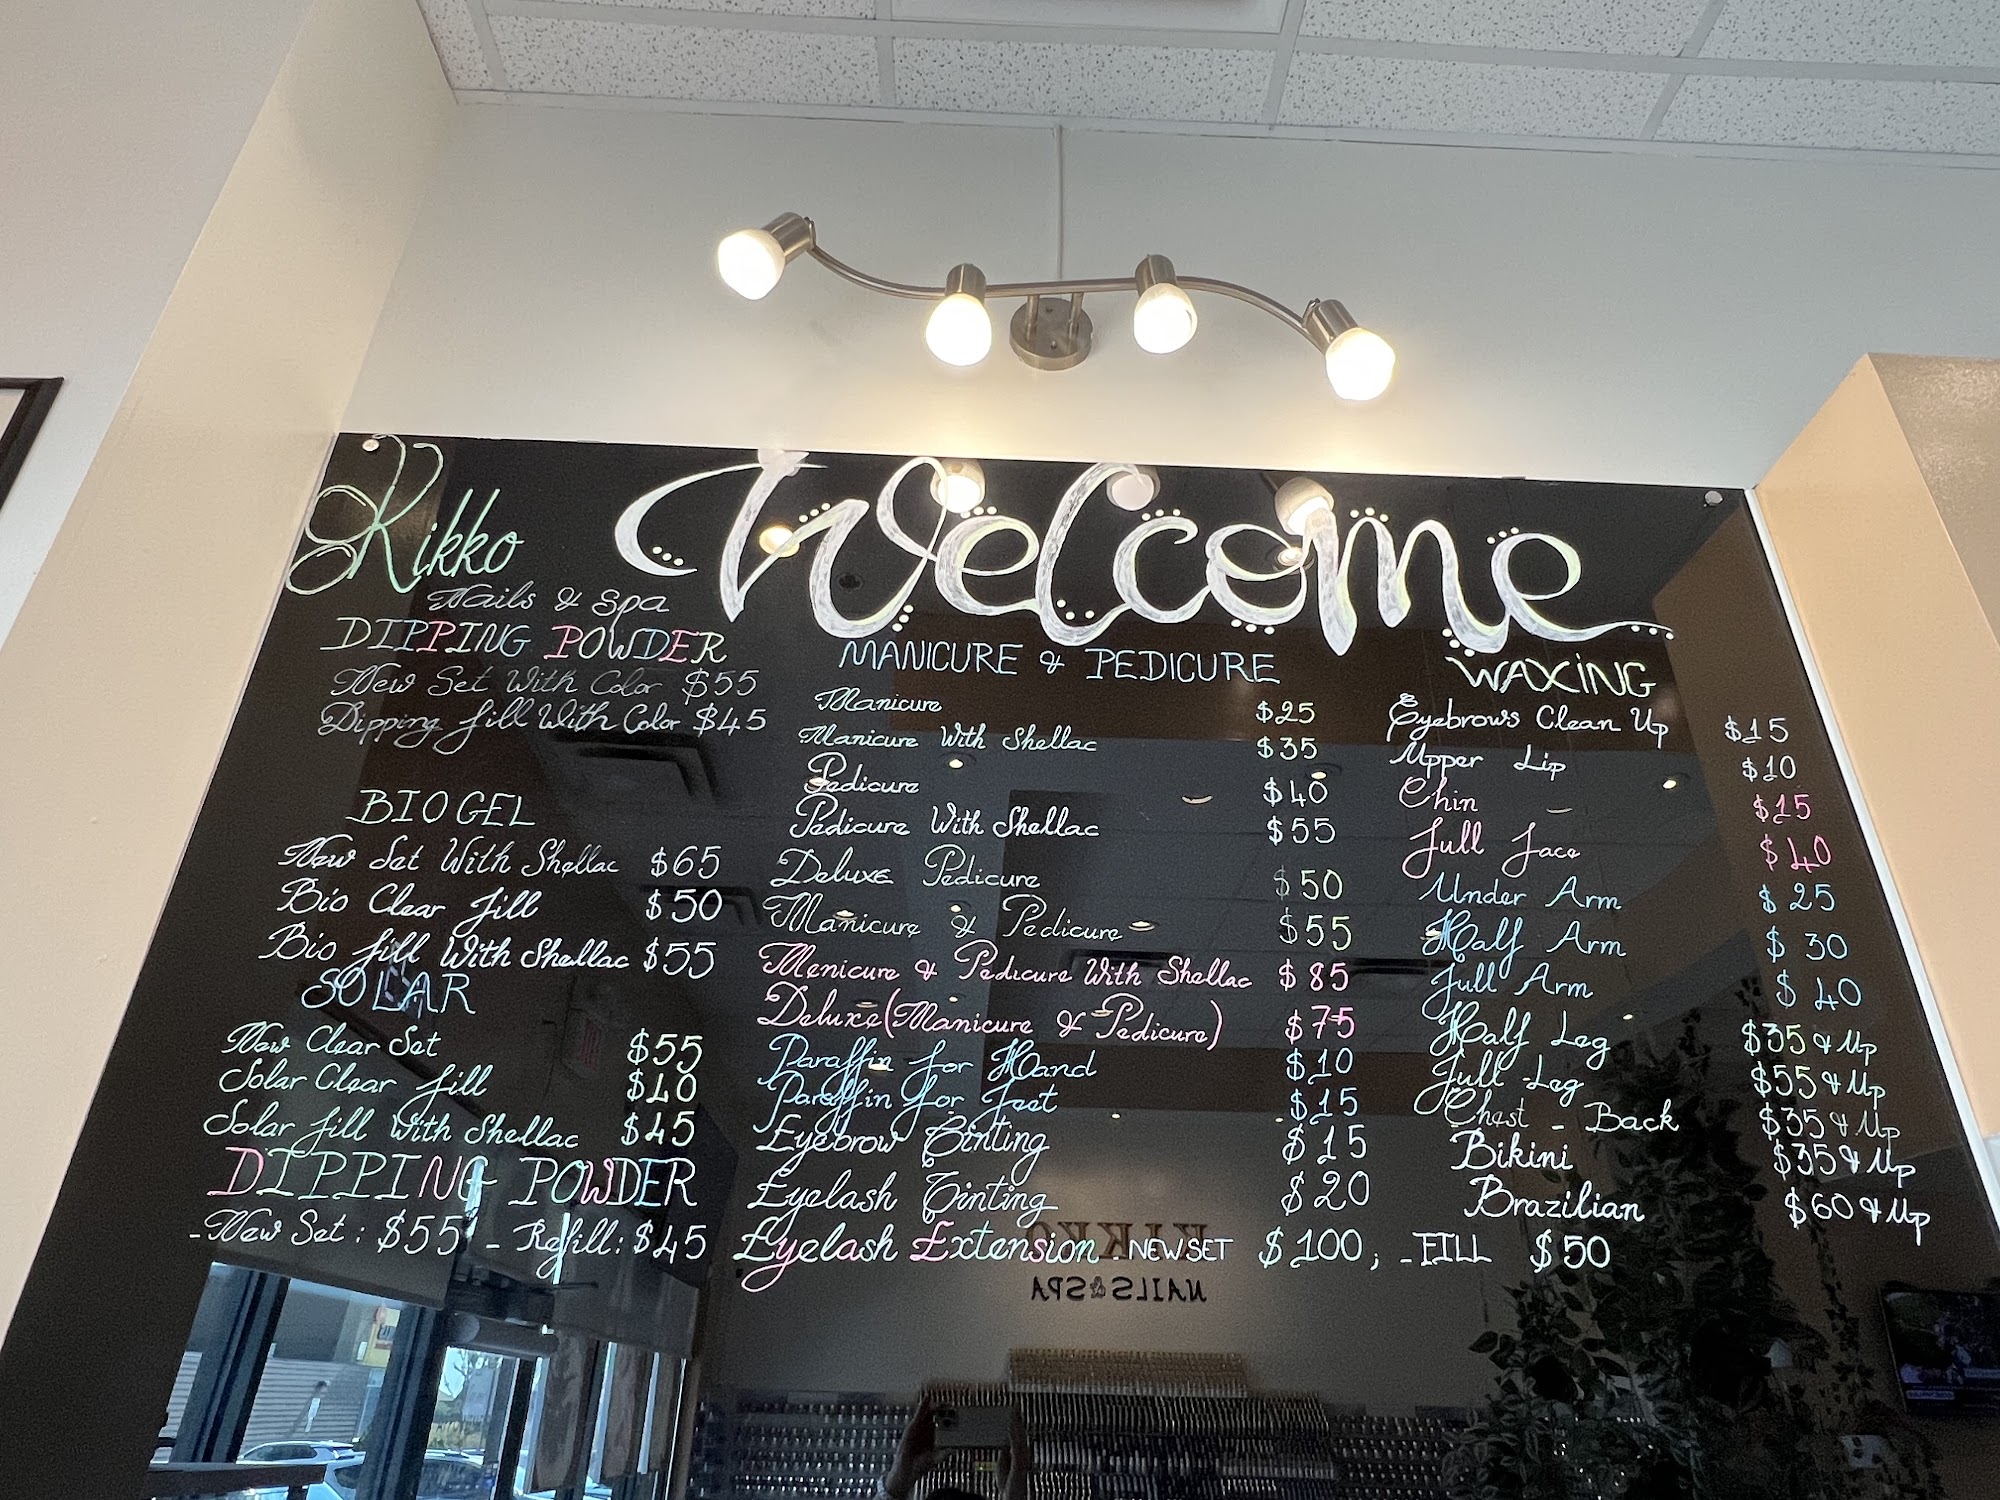 Kikko
Nails & Spa
Welcome
DIPPING POWDER
New Set With Color $55
Dipping fill With Color $45
BIO GEL
New Set With Shellac $65
Bio Clear Fill $50
Bio fill With Shellac $55
SOLAR
New Clear Set $55
Solar Clear fill $40
Solar fill With Shellac $45
DIPPING POWDER
- New Set : $55 - Refill : $45
MANICURE & PEDICURE
Manicure $25
Manicure With Shellac $35
Pedicure $40
Pedicure With Shellac $55
Deluxe Pedicure $50
Manicure & Pedicure $55
Menicure & Pedicure With Shellac $85
Deluxe (Manicure & Pedicure) $75
Paraffin for Hand $10
Paraffin for Feet $15
Eyebrow Tinting $15
Eyelash Tinting $20
Eyelash Extension - NEW SET $100 ; - FILL $50
WAXiNG
Eyebrows Clean Up $15
Upper Lip $10
Chin $15
Full Face $40
Under Arm $25
Half Arm $30
Full Arm $40
Half Leg $35 & Up
Full Leg $55 & Up
Chest - Back $35 & Up
Bikini $35 & Up
Brazilian $60 & Up
KIKKO
NAILS & SPA